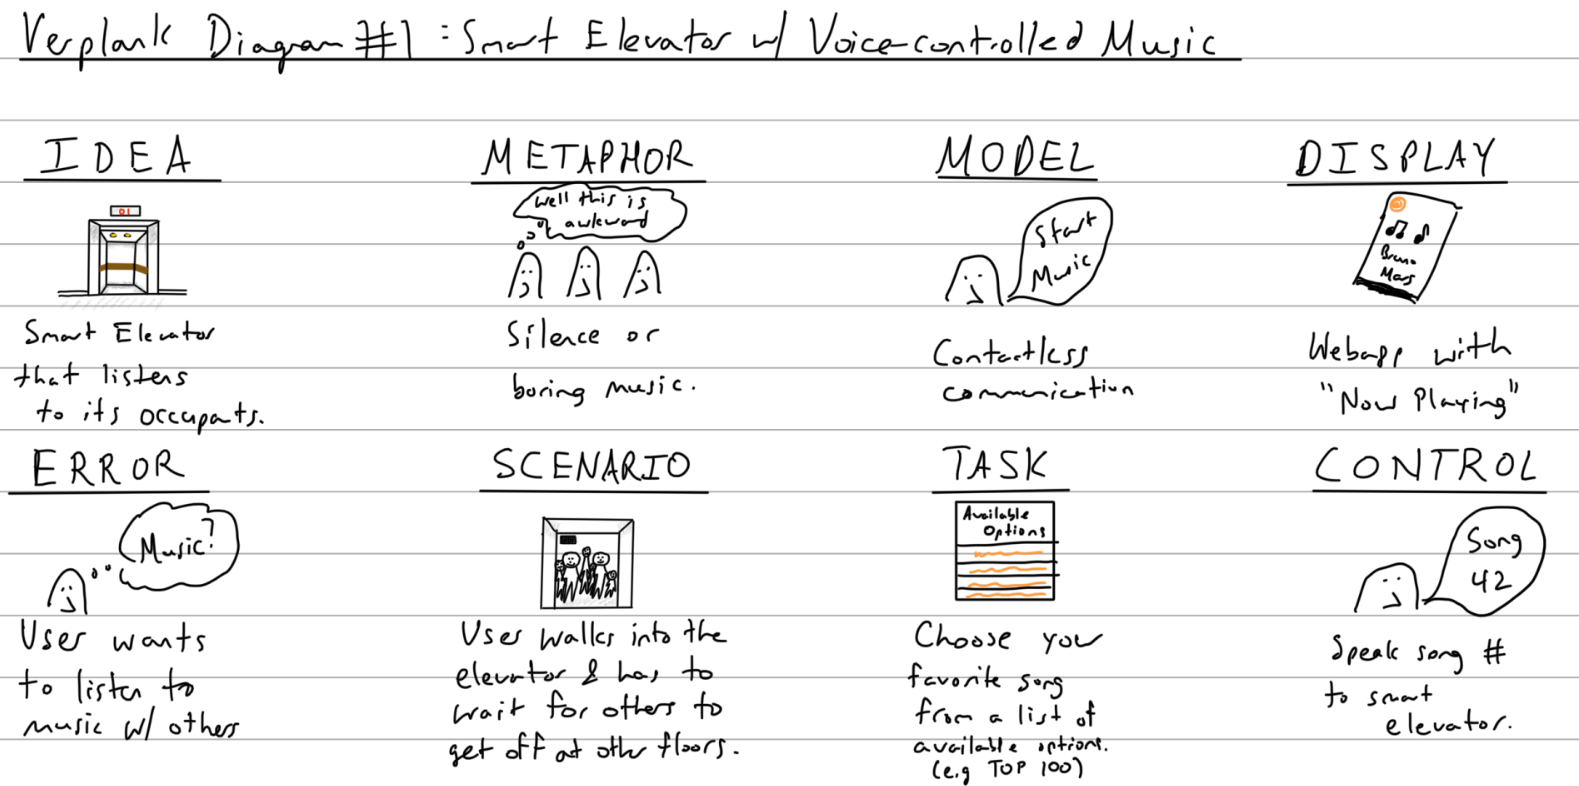 Verplank Diagram #1 : Smart Elevator w/ Voice-controlled Music
IDEA
01
Smart Elevator
that listens
to its occupants.
METAPHOR
Well this is
awkward
Silence or
boring music.
MODEL
Start
Music
Contactless
communication
DISPLAY
Bruno
Mars
Webapp with
"Now Playing"
ERROR
Music?
User wants
to listen to
music w/ others
SCENARIO
User walks into the
elevator & has to
wait for others to
get off at other floors.
TASK
Available
Options
Choose your
favorite song
from a list of
available options.
(e.g TOP 100)
CONTROL
Song
42
Speak song #
to smart
elevator.